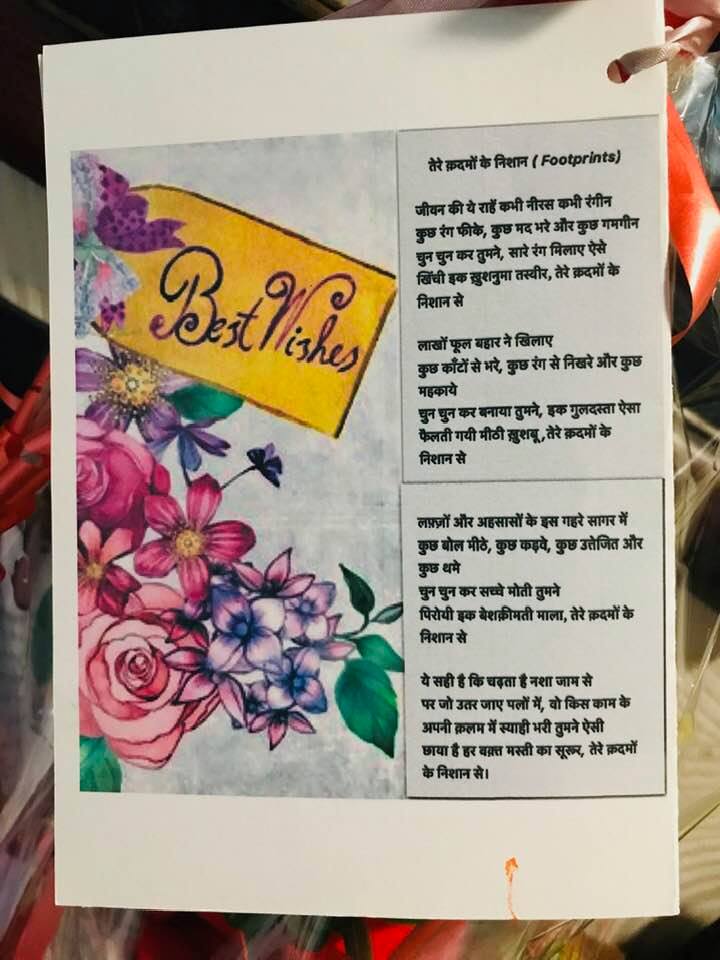 Best Wishes
तेरे क़दमों के निशान ( Footprints)
जीवन की ये राहें कभी नीरस कभी रंगीन
कुछ रंग फीके, कुछ मद भरे और कुछ गमगीन
चुन चुन कर तुमने, सारे रंग मिलाए ऐसे
खिंची इक ख़ुशनुमा तस्वीर, तेरे क़दमों के
निशान से
लाखों फूल बहार ने खिलाए
कुछ काँटों से भरे, कुछ रंग से निखरे और कुछ
महकाये
चुन चुन कर बनाया तुमने, इक गुलदस्ता ऐसा
फैलती गयी मीठी ख़ुशबू ,तेरे क़दमों के
निशान से
लफ़्ज़ों और अहसासों के इस गहरे सागर में
कुछ बोल मीठे, कुछ कड़वे, कुछ उत्तेजित और
कुछ थमे
चुन चुन कर सच्चे मोती तुमने
पिरोयी इक बेशक़ीमती माला, तेरे क़दमों के
निशान से
ये सही है कि चढ़ता है नशा जाम से
पर जो उतर जाए पलों में, वो किस काम के
अपनी क़लम में स्याही भरी तुमने ऐसी
छाया है हर वक़्त मस्ती का सुरूर, तेरे क़दमों
के निशान से।